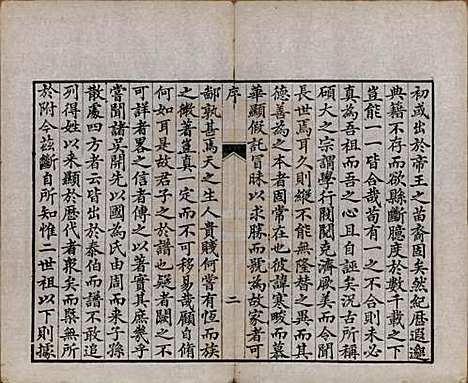 初或出於帝王之苗裔固矣然紀歷遐邈
典籍不存而欲縣斷臆度於數千載之下
豈能一一皆合哉苟有一之不合則未必
真為吾祖而吾之心且自誣矣況古所稱
碩大之宗謂學行閥閱克濟厥美而令聞
長世焉耳久則縱不能無隆替之異而其
德善為之本者固常在也彼諱寒畯而慕
華顯假託冒昧以求勝而號為故家者可
序
二
鄙孰甚焉天之生人貴賤何常有恆而族
之微著豈真一定而不可移易哉顧自脩
何如耳是故君子之於譜也疑者闕之不
可詳者畧之信者傳之以責其實其庶幾乎
嘗聞諸吳開先以國為氏由周而來子孫
散處四方者云皆出於泰伯而譜不敢追
列得姓以來顯於歷代者衆矣而槩無所
於附今茲斷自所知惟二世祖以下則據